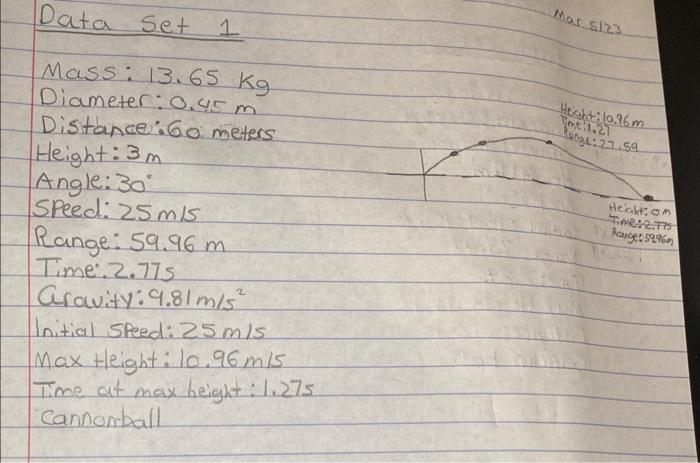 Data Set 1
Mar 5/23
Mass: 13.65 Kg
Diameter: 0.45 m
Distance: 60 meters
Height: 3 m
Angle: 30°
Speed: 25 m/s
Range: 59.96 m
Time: 2.77s
Gravity: 9.81 m/s²
Initial Speed: 25 m/s
Max Height: 10.96 m/s
Time at max height: 1.27s
Cannonball
Height: 10.96 m
Time: 1.27
Range: 27.59
Height: 0 m
Time: 2.77s
Range: 59.96m